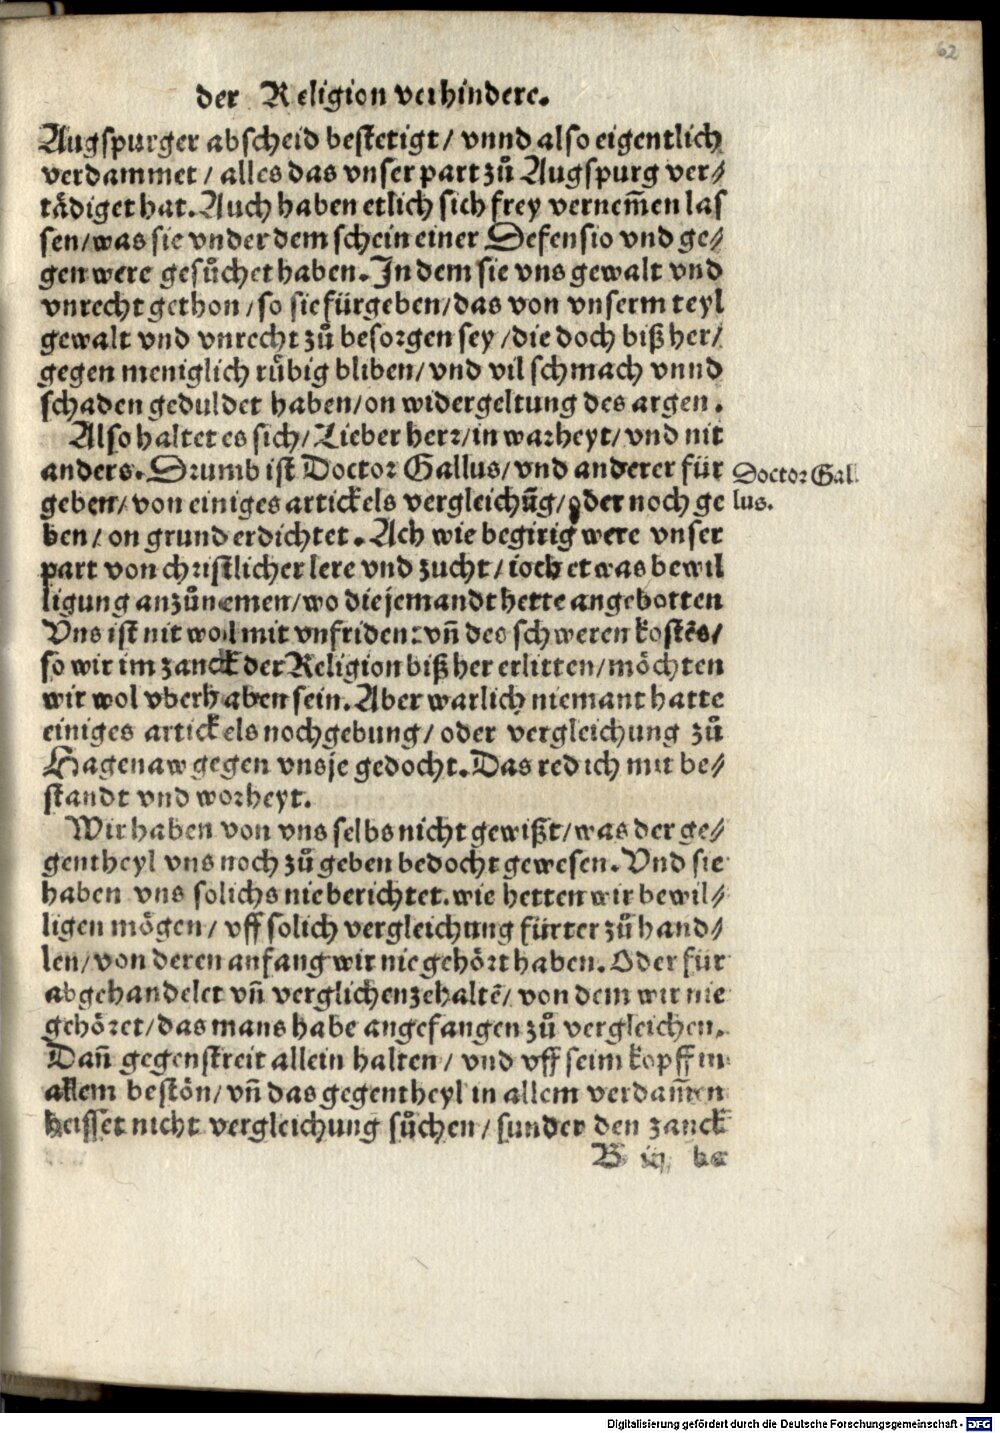 62
der Religion verhindere.
Augspurger abscheid bestetigt/ vnnd also eigentlich
verdammet/ alles das vnser part zuͦ Augspurg ver⸗
taͤdiget hat. Auch haben etlich sich frey vernem̃en las
sen/ was sie vnder dem schein einer Defensio vnd ge⸗
gen were gesuͦchet haben. In dem sie vns gewalt vnd
vnrecht gethon/ so sie fürgeben/ das von vnserm teyl
gewalt vnd vnrecht zuͦ besorgen sey/ die doch biß her/
gegen meniglich ruͦbig bliben/ vnd vil schmach vnnd
schaden geduldet haben/ on widergeltung des argen.
Also haltet es sich/ Lieber herr/ in warheyt/ vnd nit
anders. Drumb ist Doctor Gallus/ vnd anderer für
geben/ von einiges artickels vergleichũg/ oder noch ge
ben/ on grund erdichtet. Ach wie begirig were vnser
part von christlicher lere vnd zucht/ ioch etwas bewil
ligung anzuͦnemen/ wo die jemandt hette angebotten
Vns ist nit wol mit vnfriden: vñ des schweren kostẽs/
so wir im zanck der Religion biß her erlitten/ möchten
wir wol vberhaben sein. Aber warlich niemant hatte
einiges artickels nochgebung/ oder vergleichung zuͦ
Hagenaw gegen vns je gedocht. Das red ich mit be⸗
standt vnd worheyt.
Doctor Gal
lus.
Wir haben von vns selbs nicht gewißt/ was der ge⸗
gentheyl vns noch zuͦ geben bedocht gewesen. Vnd sie
haben vns solichs nie berichtet. wie hetten wir bewil⸗
ligen mögen/ vff solich vergleichung fürter zuͦ hand⸗
len/ von deren anfang wir nie gehört haben. Oder für
abgehandelet vñ verglichen zehaltẽ/ von dem wir nie
gehöret/ das mans habe angefangen zuͦ vergleichen.
Dañ gegenstreit allein halten/ vnd vff seim kopff in
allem bestön/ vñ das gegentheyl in allem verdam̃en
heisset nicht vergleichung suͦchen/ sunder den zanck
B iij
Digitalisierung gefördert durch die Deutsche Forschungsgemeinschaft - DFG